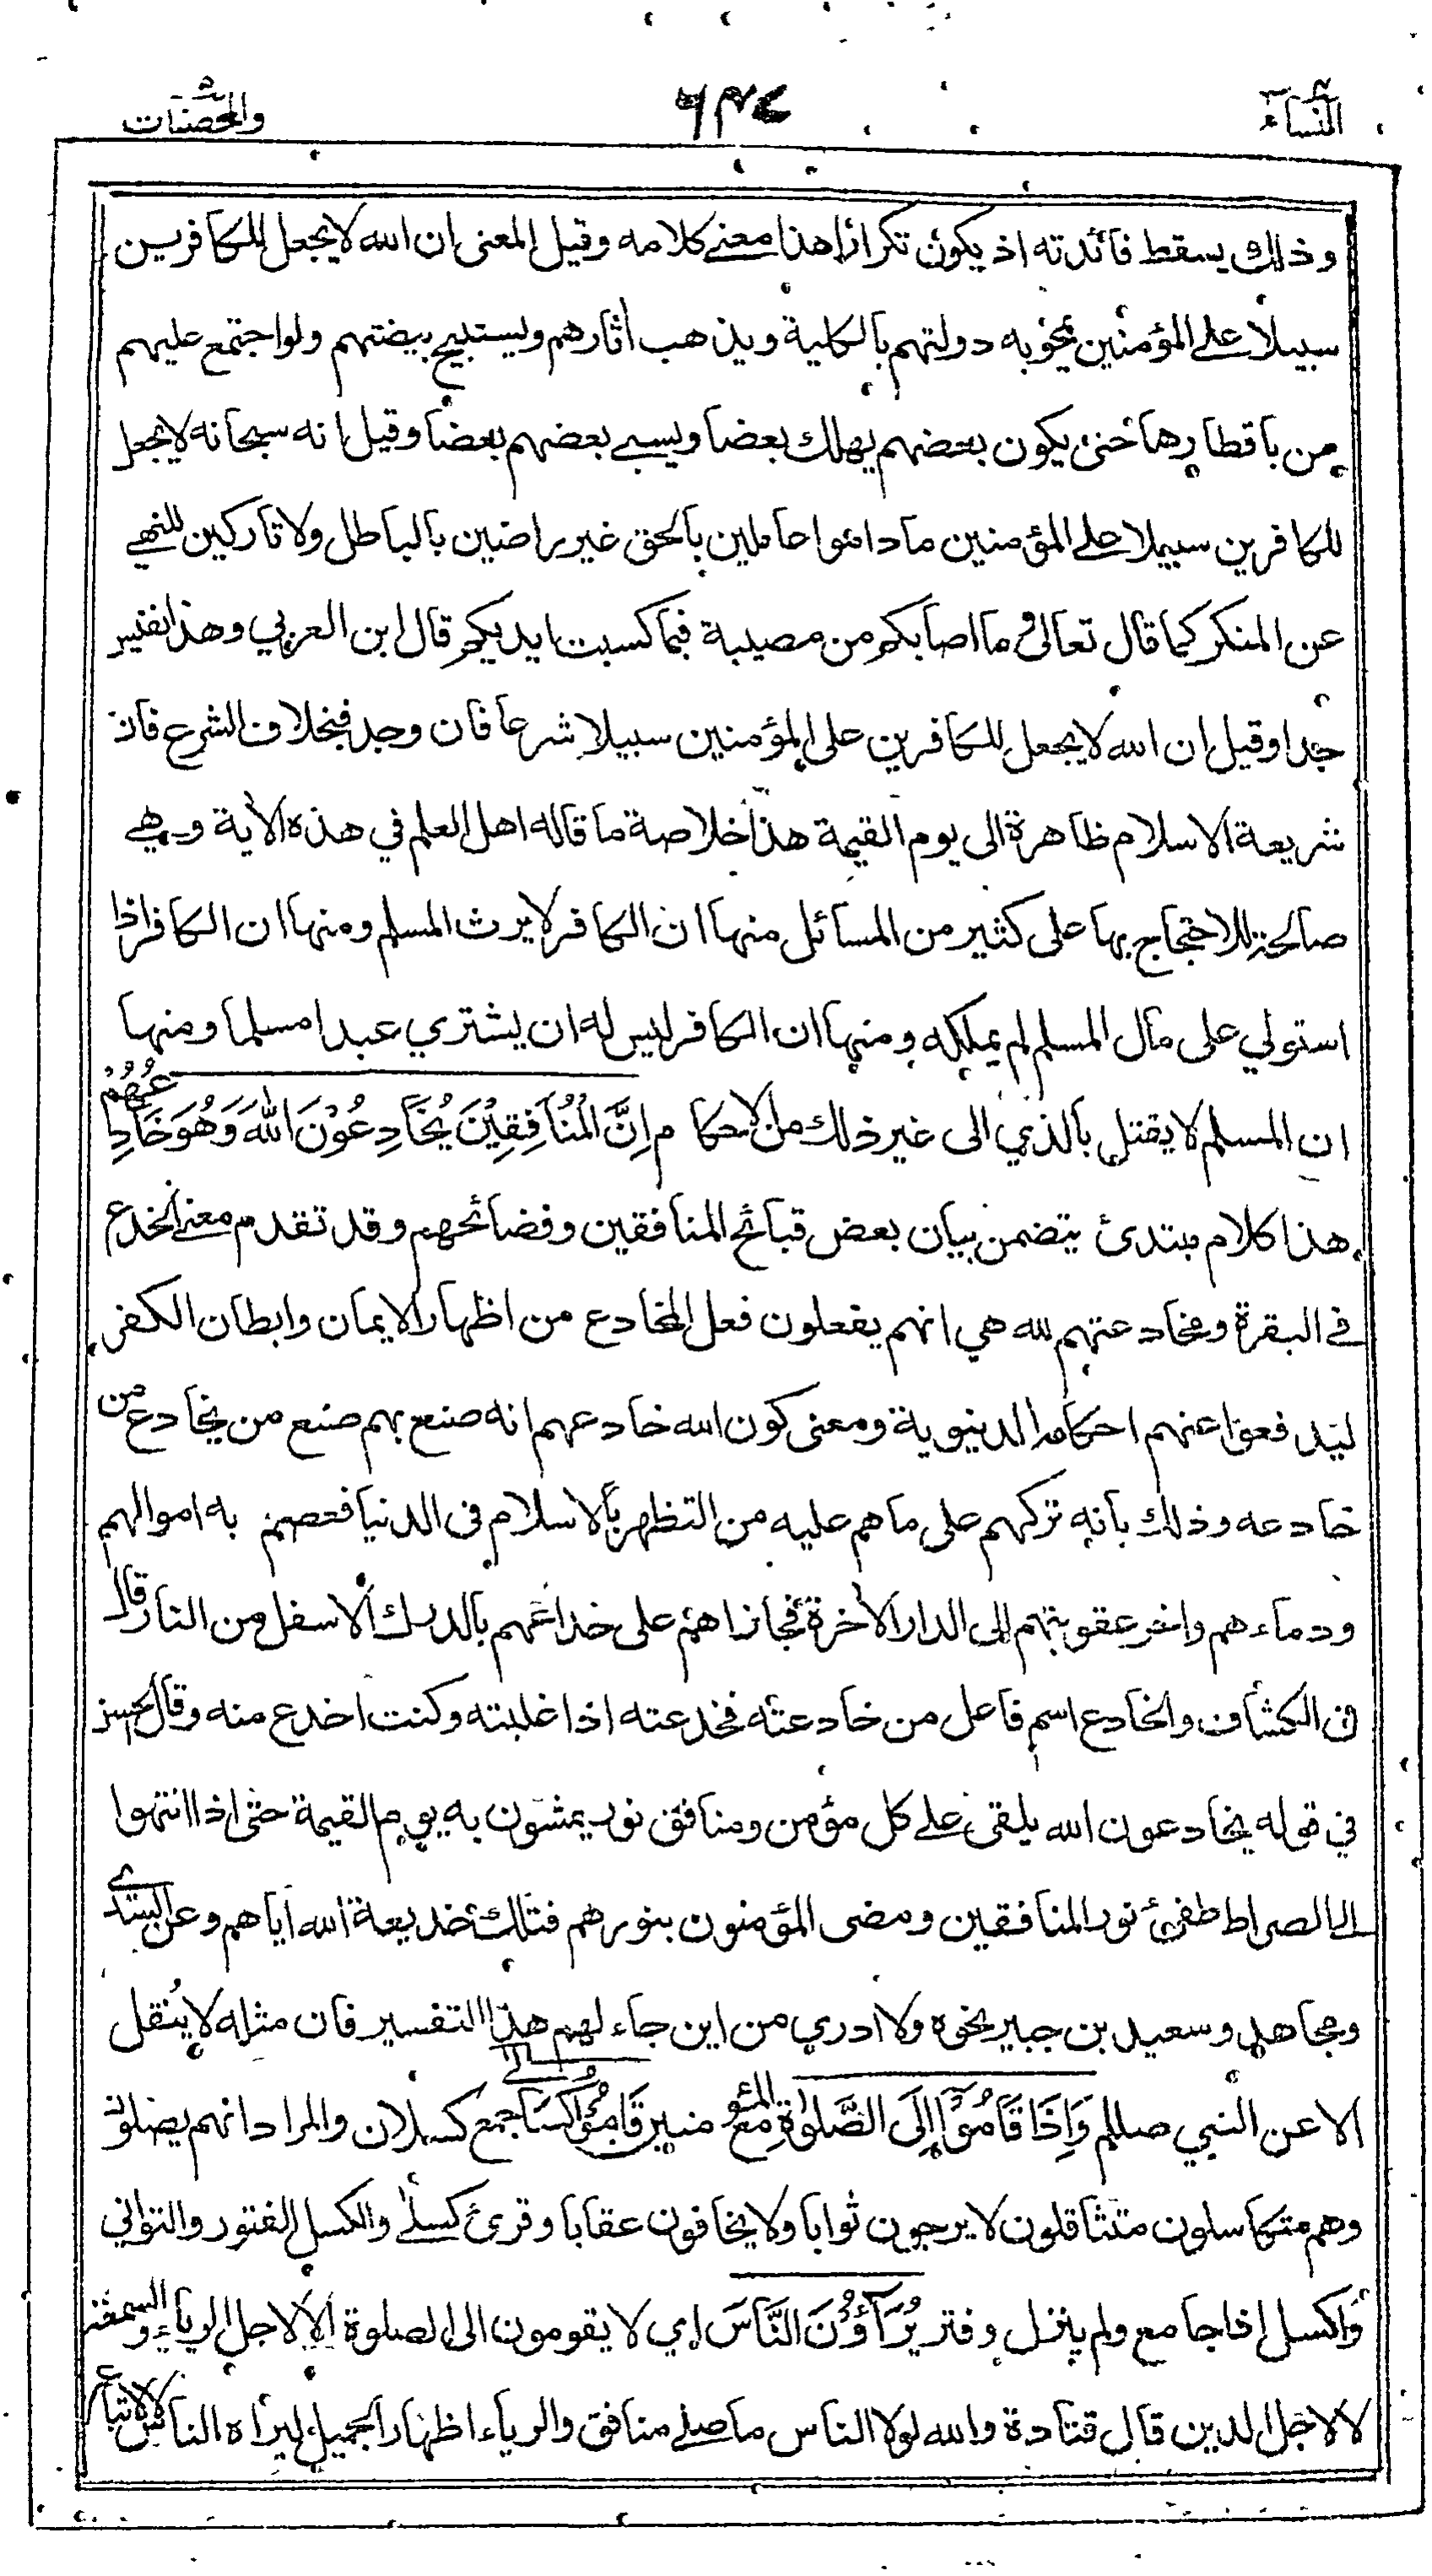 النساء
٦٣٤
والمحصنات
وذلك يسقط فائدته اذ يكون تكرارا هذا معنے كلامه وقيل المعنى ان الله لا يجعل للكافرين
سبيلا علے المؤمنين يمحو به دولتهم بالكلية ويذهب أثارهم ويستبيح بيضتهم ولو اجتمع عليهم
من باقطارها حتى يكون بعضهم يهلك بعضا ويسبے بعضهم بعضا وقيل انه سبحانه لا يجعل
للكافرين سبيلا علے المؤمنين ما داموا عاملين بالحق غير راضين بالباطل ولا تاركين للنهے
عن المنكر كما قال تعالى و ما اصابكم من مصيبة فبما كسبت ايديكم قال ابن العربي وهذا نفيس
جدا وقيل ان الله لا يجعل للكافرين على المؤمنين سبيلا شرعا فان وجد فبخلاف الشرع فان
شريعة الاسلام ظاهرة الى يوم القيمة هذا خلاصة ما قاله اهل العلم في هذه الأية وهي
صالحة للاحتجاج بها على كثير من المسائل منها ان الكافر لا يرث المسلم ومنها ان الكافر اذا
استولي على مال المسلم لم يملكه ومنها ان الكافر ليس له ان يشتري عبدا مسلما ومنها
ان المسلم لا يقتل بالذمي الى غير ذلك من الاحكام إِنَّ الْمُنَافِقِيْنَ يُخَادِعُوْنَ اللهَ وَهُوَ خَادِعُهُمْ
هذا كلام مبتدئ يتضمن بيان بعض قبائح المنافقين وفضائحهم وقد تقدم معنے الخدع
فے البقرة ومخادعتهم لله هي انهم يفعلون فعل المخادع من اظهار الايمان وابطان الكفر
ليدفعوا عنهم احكامه الدنيوية ومعنى كون الله خادعهم انه صنع بهم صنع من يخادع من
خادعه وذلك بانه تركهم على ما هم عليه من التظهر بالاسلام فى الدنيا فعصم به اموالهم
ودماءهم واخر عقوبتهم الى الدار الأخرة فجازاهم على خداعهم بالدرك الاسفل من النار قال
فى الكشاف والخادع اسم فاعل من خادعته فخدعته اذا غلبته وكنت اخدع منه وقال الحسن
في قوله يخادعون الله يلقى علے كل مؤمن ومنافق نور يمشون به يوم القيمة حتى اذا انتهوا
الى الصراط طفئ نور المنافقين ومضى المؤمنون بنورهم فتلك خديعة الله اياهم وعن السدي
ومجاهد وسعيد بن جبير نحوه ولا ادري من اين جاء لهم هذا التفسير فان مثله لا يُنقل
الا عن النبي صللم وَاِذَا قَامُوْٓا اِلَى الصَّلٰوةِ مع المؤمنين قَامُوْا كُسَالٰے جمع كسلان والمراد انهم يصلون
وهم متكاسلون متثاقلون لا يرجون ثوابا ولا يخافون عقابا وقرئ كسلے والكسل الفتور والتواني
وَاكسل اذا جامع ولم ينزل وفتر يُرَآؤُنَ النَّاسَ اي لا يقومون الى الصلوة الا لاجل الرياء والسمعة
لا لاجل الدين قال قتادة والله لولا الناس ما صلے منافق والرياء اظهار الجميل ليراه الناس لا لاتباع